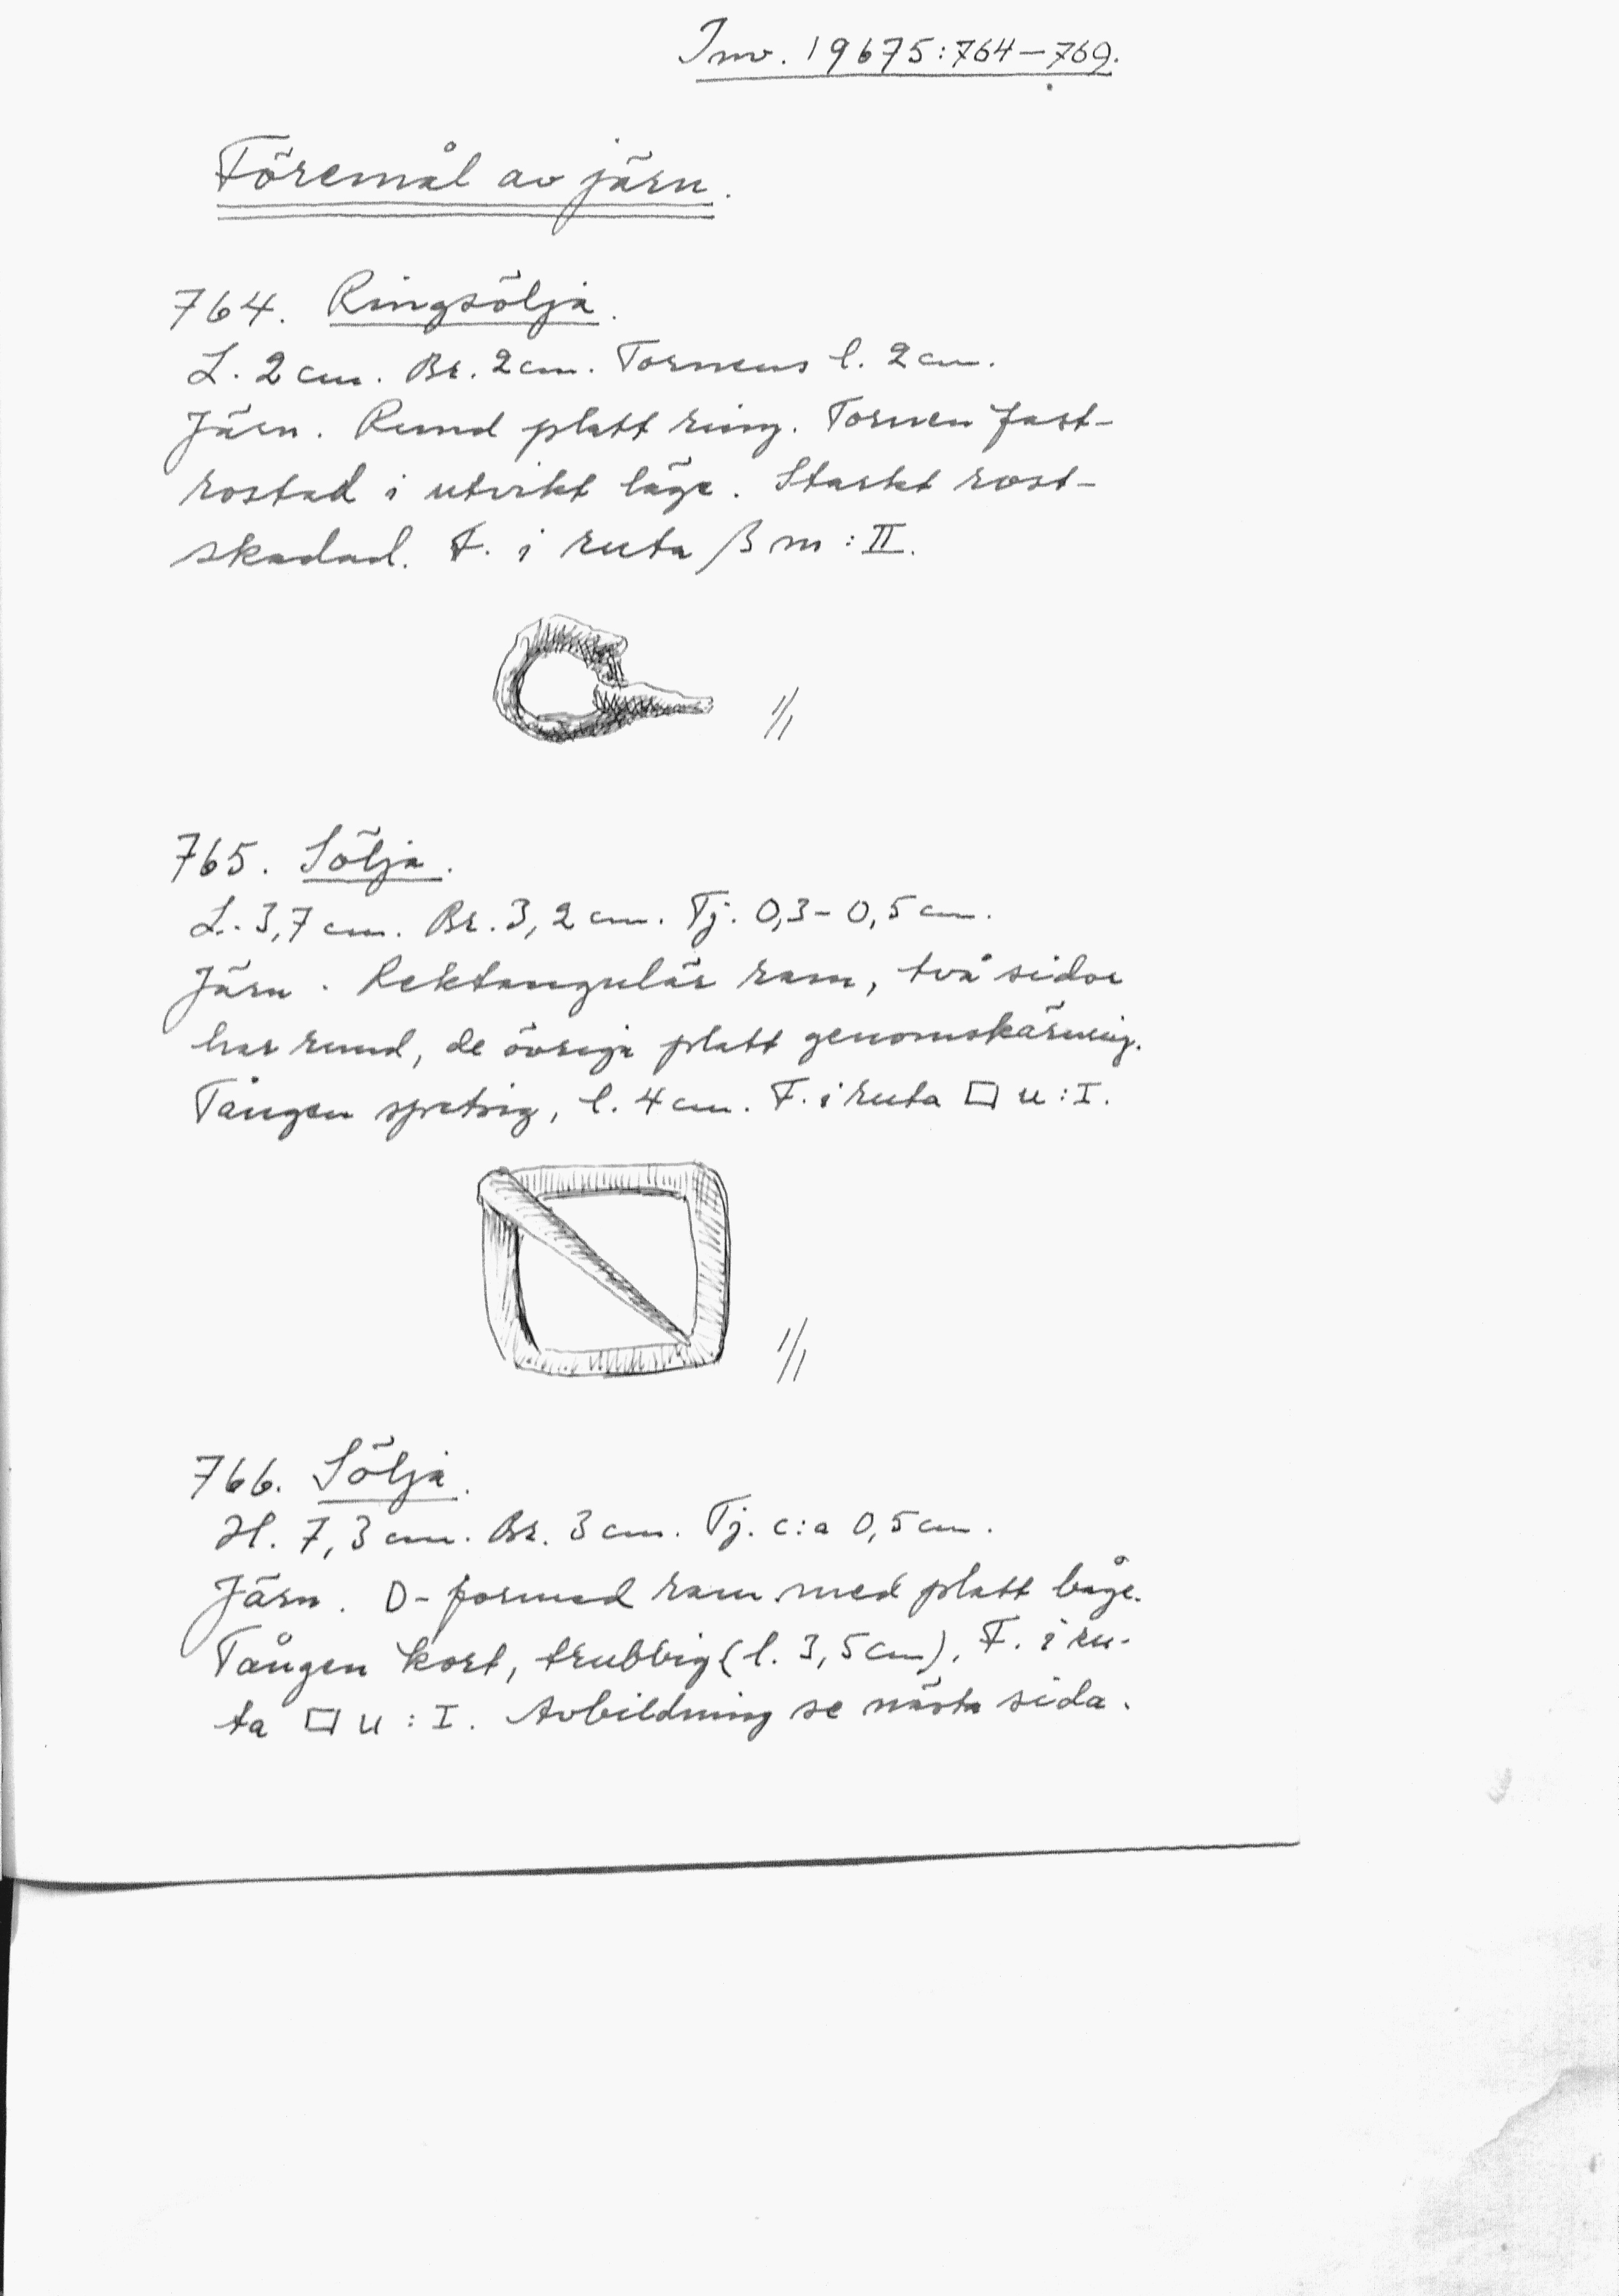 Inv. 19675:764-769.
Föremål av järn.
764. Ringsölja.
L. 2 cm. Br. 2 cm. Tornens l. 2 cm.
Järn. Rund platt ring. Tornen fast-
rostad i utvikt läge. Starkt rost-
skadad. F. i ruta β m : II.
1/1
765. Sölja.
L. 3,7 cm. Br. 3,2 cm. Tj. 0,3-0,5 cm.
Järn. Rektangulär ram, två sidor
har rund, de övriga platt genomskärning.
Tången spetsig, l. 4 cm. F. i ruta □ u : I.
1/1
766. Sölja.
H. 7,3 cm. Br. 3 cm. Tj. c:a 0,5 cm.
Järn. D-formad ram med platt båge.
Tången kort, trubbig (l. 3,5 cm). F. i ru-
ta □ u : I. Avbildning se nästa sida.